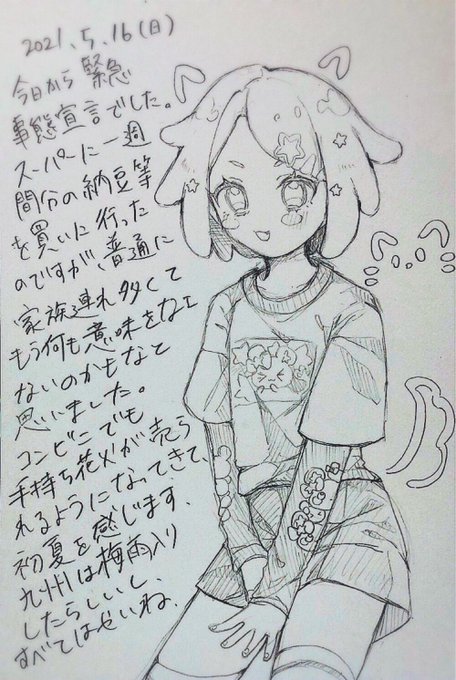 2021.5.16(日)
今日から緊急
事態宣言でした。
スーパーに一週
間分の納豆等
を買いに行った
のですが、普通に
家族連れ多くて
もう何も意味をなェ
ないのかもなと
思いました。
コンビニでも
手持ち花火が売ら
れるようになってきて、
初夏を感じます。
九州は梅雨入り
したらしいし、
すべてはせいね、